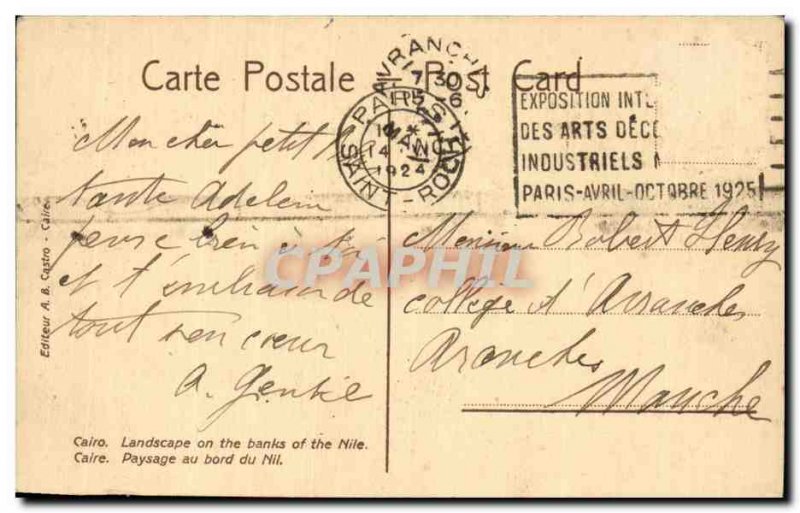 Carte Postale — Post Card
AVRANCHES
7 30
15 - 6
PARIS
SAINT-ROCH
14
1924
EXPOSITION INT
DES ARTS DÉCO
INDUSTRIELS M
PARIS-AVRIL-OCTOBRE 1925
Mon cher petit
tante Adeleine
pense bien à toi
et t'embrasse de
tout son cœur
A. Gentil
Monsieur Robert Henry
collège d'Avranches
Avranches
Manche
Editeur A. B. Castro - Caire.
CPAPHIL
Cairo. Landscape on the banks of the Nile.
Caire. Paysage au bord du Nil.